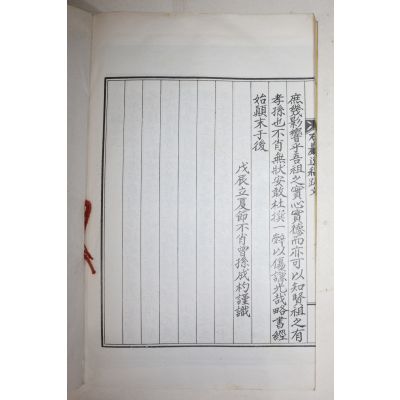 庶幾影響乎吾祖之實心實德而亦可以知賢祖之有
孝孫也不肖無狀安敢杜撰一辭以傷謙光哉略書經
始顚末于後
戊辰立夏節不肖曾孫成杓謹識